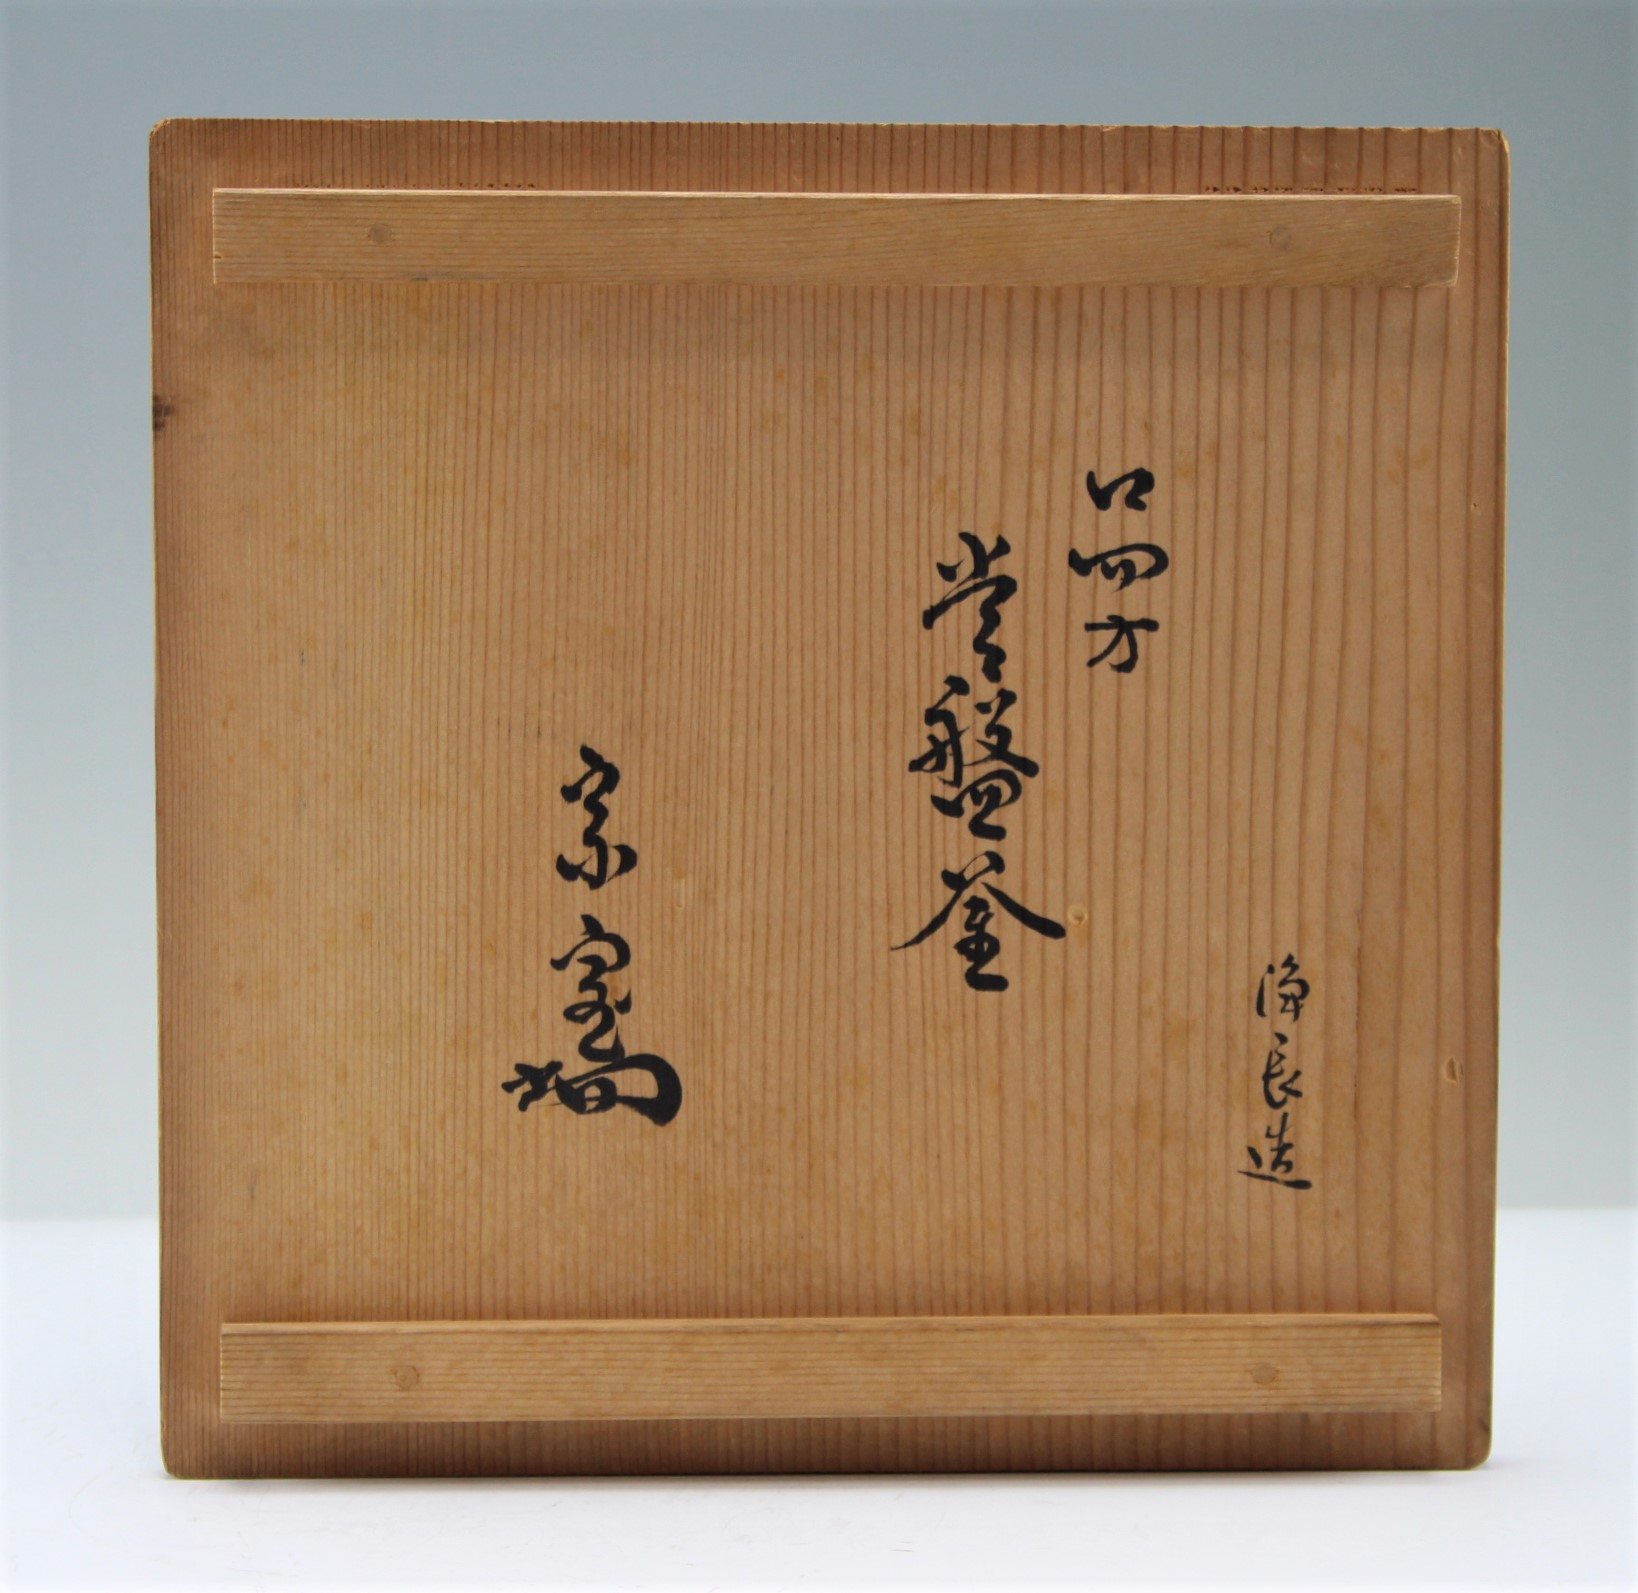 浄長造
口四方
常盤釜
宗室